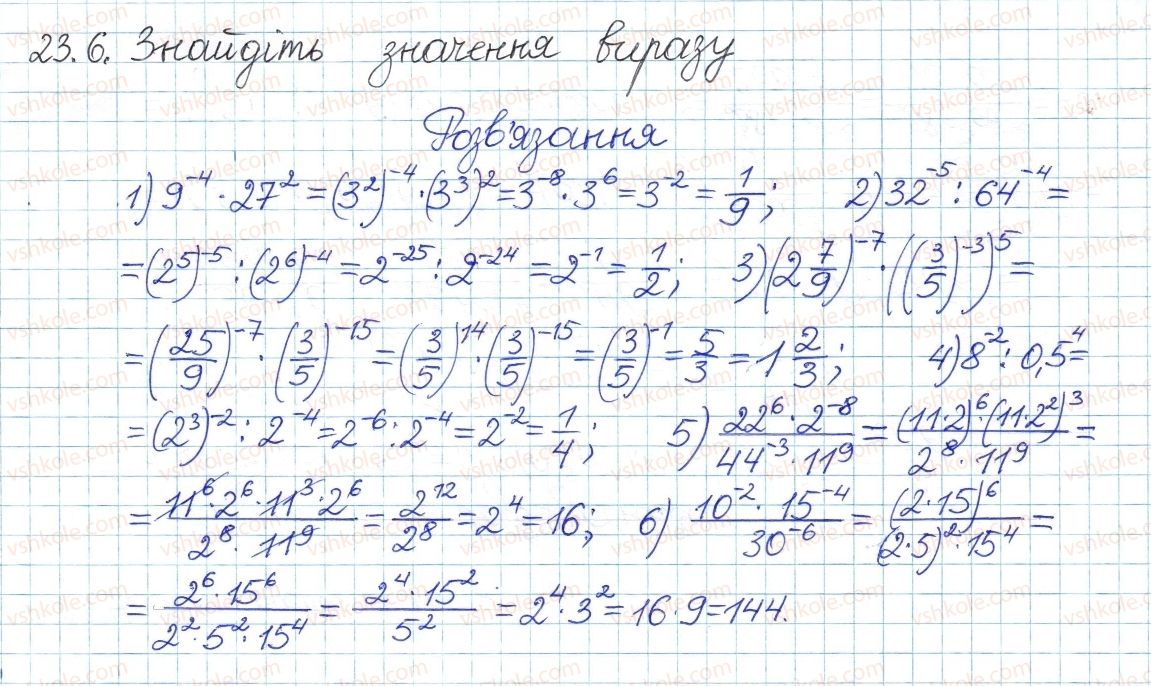 23.6. Знайдіть значення виразу
Розв'язання
1) 9^{-4} · 27^2 = (3^2)^{-4} · (3^3)^2 = 3^{-8} · 3^6 = 3^{-2} = 1/9; 2) 32^{-5} : 64^{-4} =
= (2^5)^{-5} : (2^6)^{-4} = 2^{-25} : 2^{-24} = 2^{-1} = 1/2; 3) (2 7/9)^{-7} · ((3/5)^{-3})^5 =
= (25/9)^{-7} · (3/5)^{-15} = (3/5)^{14} · (3/5)^{-15} = (3/5)^{-1} = 5/3 = 1 2/3; 4) 8^{-2} : 0,5^4 =
= (2^3)^{-2} : 2^{-4} = 2^{-6} : 2^{-4} = 2^{-2} = 1/4; 5) (22^6 · 2^{-8})/(44^{-3} · 11^9) = ((11·2)^6 · (11·2^2)^3)/(2^8 · 11^9) =
= (11^6 · 2^6 · 11^3 · 2^6)/(2^8 · 11^9) = 2^{12}/2^8 = 2^4 = 16; 6) (10^{-2} · 15^{-4})/(30^{-6}) = (2·15)^6/((2·5)^2 · 15^4) =
= (2^6 · 15^6)/(2^2 · 5^2 · 15^4) = (2^4 · 15^2)/(5^2) = 2^4 · 3^2 = 16 · 9 = 144.
vshkole.com